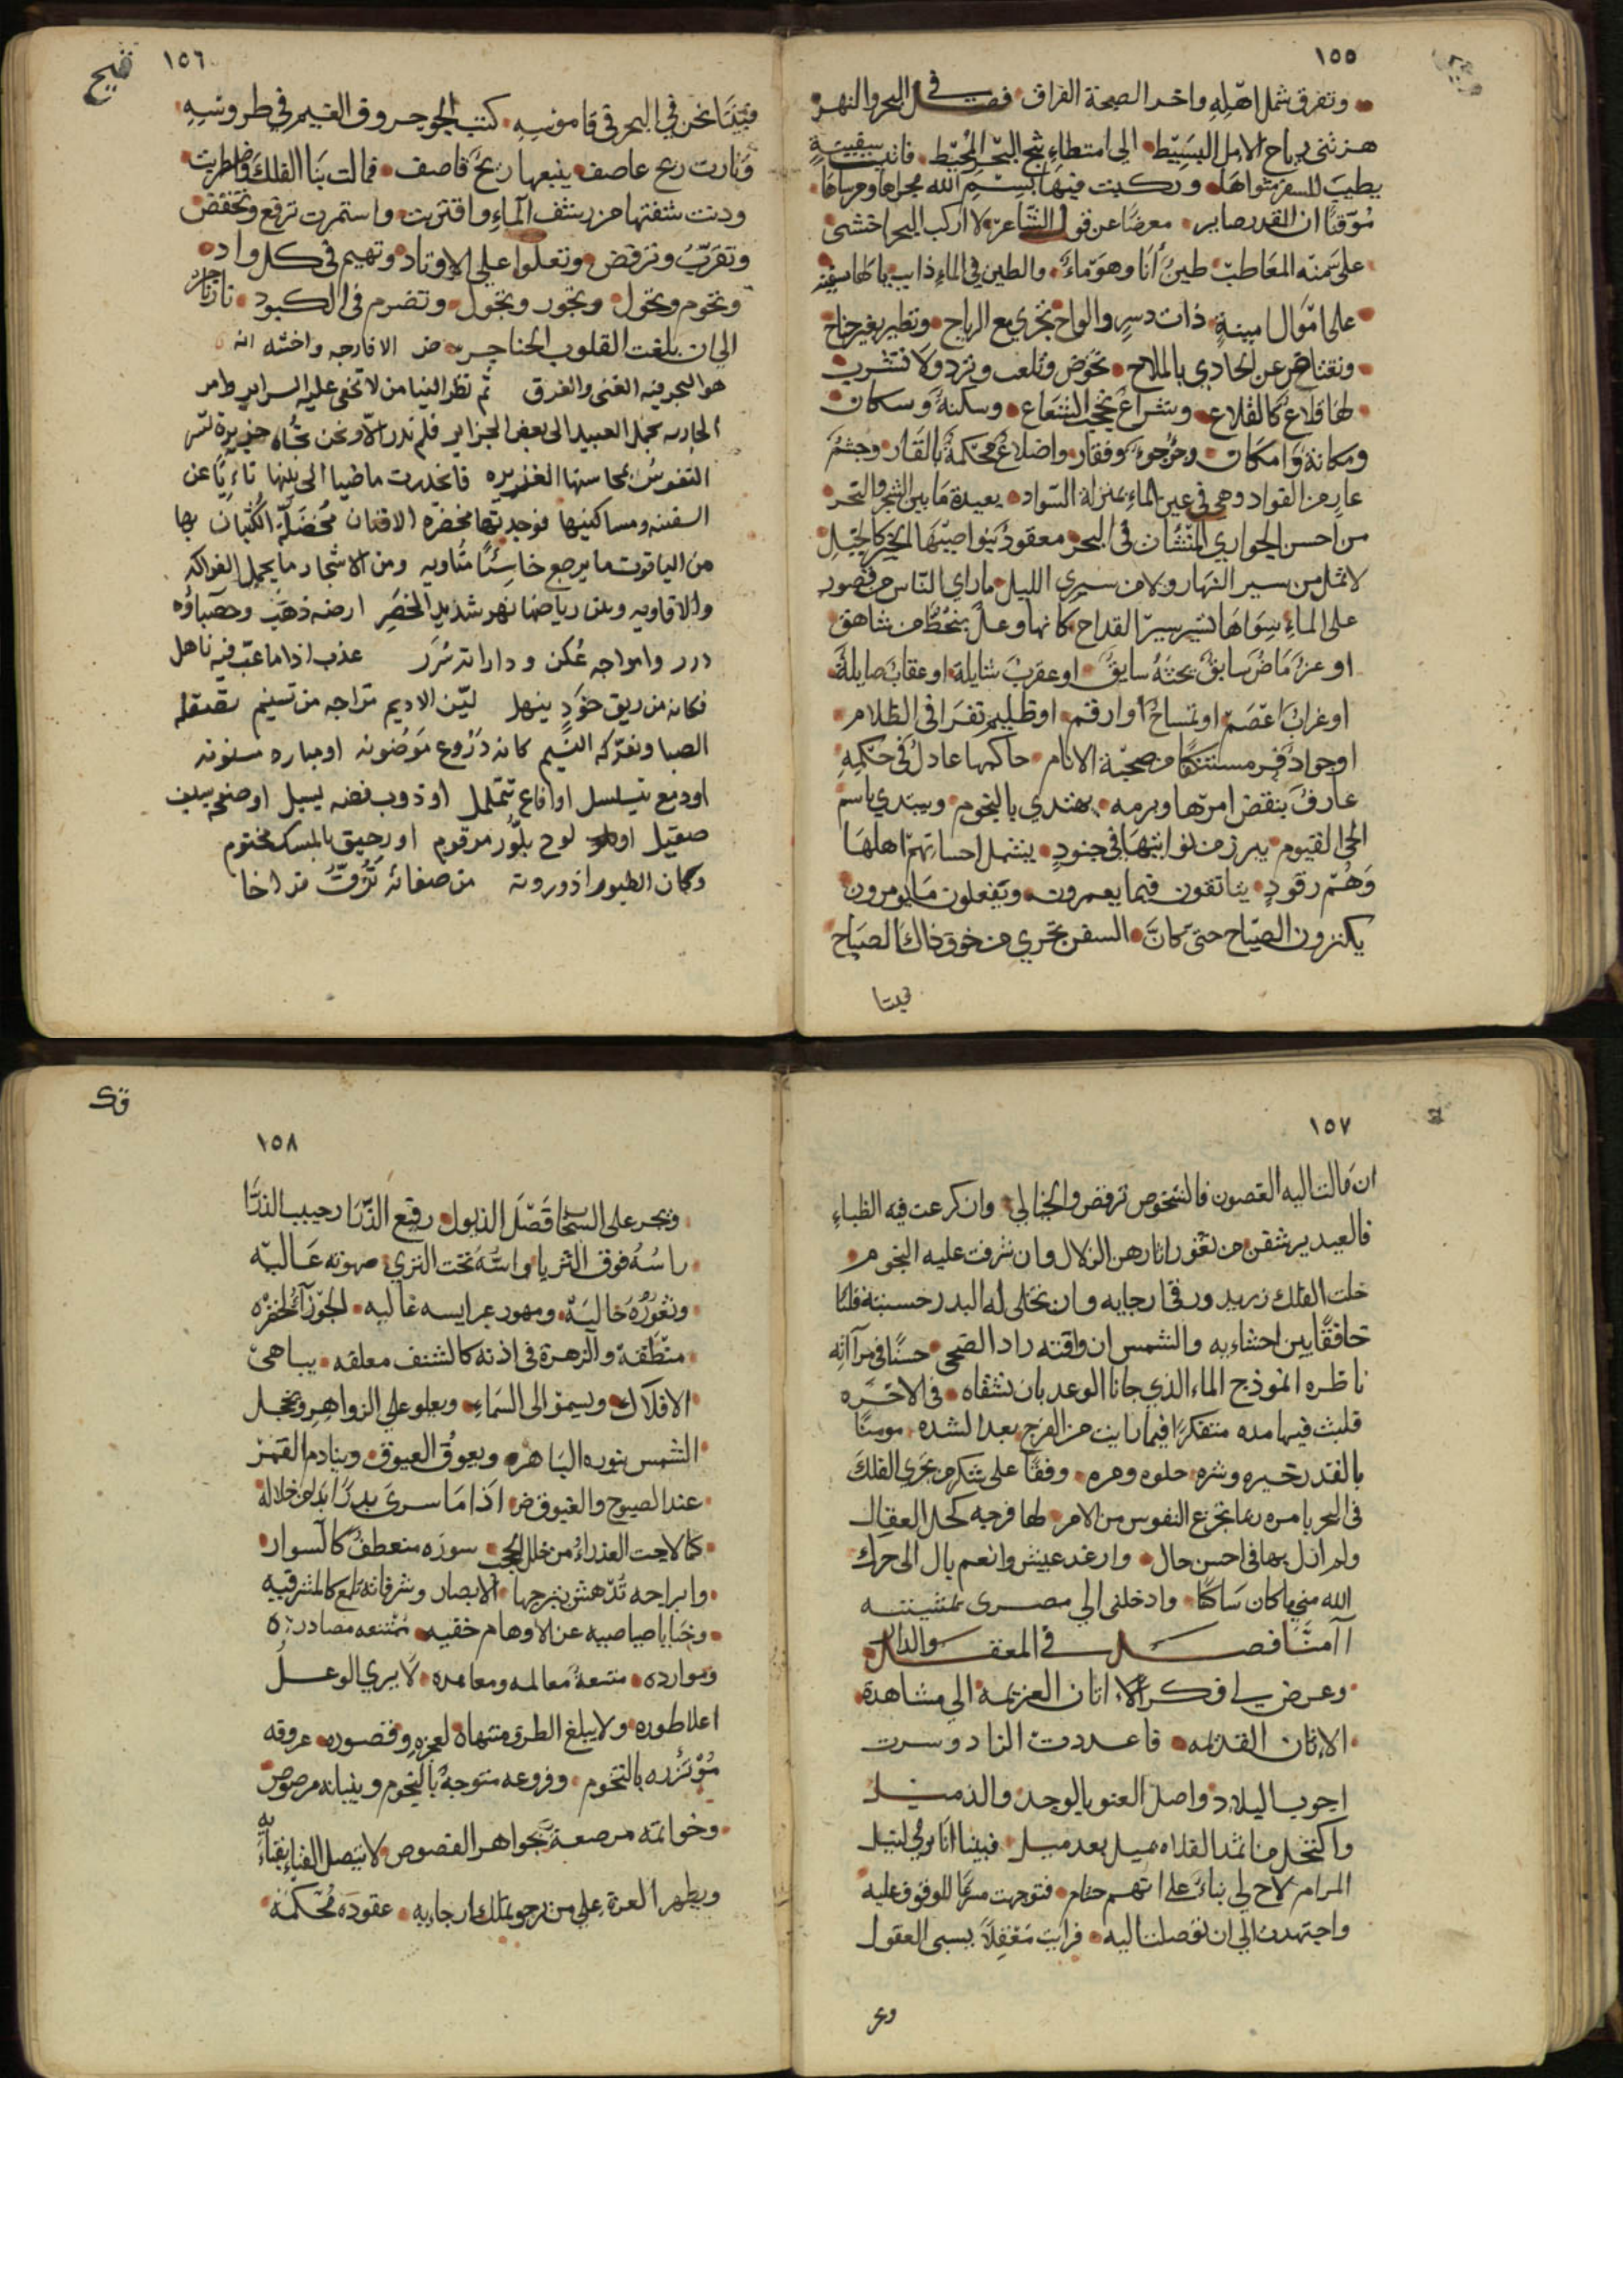 ١٥٥
وتفرق شمل اهله واخد الصحة الفراق فصل في البحر والنهر
هزتني رياح الامل البسيط الي امتطاء ثبج البحر المحيط فاتيت سفينة
يطيب للسفر مثواها وركبت فيها بسم الله مجراها ومرساها
موقنا ان القدر صاير معرضا عن قول الشاعر لا اركب البحر اخشى
على منه المعاطب طين أنا وهو ماء والطين في الماء ذايب يا لها سفينة
على اموال امينة ذات دسر والواح تجري مع الرياح وتطير بغير جناح
وتعتاض عن الحادي بالملاح تخوض وتلعب وترد ولا تشرب
لها قلاع كالقلاع وشراع يحجب الشعاع وسكينة وسكان
ومكانة وامكان وجؤجوء وفقار واضلاع محكمة بالقار وجسم
عار من الفواد وهي في عين الماء بمنزلة السواد بعيدة ما بين السحر والنحر
من احسن الجواري المنشآت في البحر معقود بنواصيها الخير كالخيل
لا تمل من سير النهار ولا من سرى الليل ما راي الناس من قصور
على الماء سواها تسير سير القداح كانها وعل ينحط من شاهق
او عرماض سابق يحثه سايق او عقرب شايلة او عقاب صايلة
او غراب اعصم او تمساح او ارقم او ظليم نفر في الظلام
او جواد فر مستنكفا من صحبة الانام حاكمها عادل في حكمه
عارف بنقض امرها وبرمه يهتدي بالنجوم ويبتدي باسم
الحي القيوم يبرز من نواتيها في جنود يشمل احسانهم اهلها
وهم رقود يتانقون فيما يعمرون ويفعلون ما يومرون
يكثرون الصياح حتى كان السفن تجري من خوف ذاك الصياح
فبينا
١٥٦
فبينا نحن في البحر في قاموسه كتب الجو حروف الغيم في طروسه
وثارت ريح عاصف يتبعها ريح قاصف فمالت بنا الفلك واضطربت
ودنت شفتها من رشف الماء واقتربت واستمرت ترفع وتخفض
وتقرب وترقض وتعلوا على الاوتاد وتهيم في كل واد
وتحوم وتحول وتجور وتجول وتضرم في الكبود نار
الي ان بلغت القلوب الحناجر
هو البحر فيه الغنى والغرق ثم نظر الينا من لا تخفى عليه السراير وامر
الجارية بحمل العبيد الى بعض الجزاير فلم ندر الا ونحن تجاه جزيرة تسر
النفوس بمحاسنها الغزيره فانحدرت ماضيا الى بينها نائيا عن
السفينه ومساكنيها فوجدتها مخضرة الافنان مخضلة الكثبان بها
من الياقوت ما يرجع خاسئا مناويه ومن الاشجار ما يحمل الفواكه
والافاويه وبين رياضها نهر شديد الخصر ارضه ذهب وحصباؤه
درر وامواجه عكن وداراته سرر عذب اذا ما عب فيه ناهل
فكانه من ريق خود ينهل لين الاديم مزاجه من تسنيم تصقله
الصبا وتعركه النسيم كانه دروع موضونه او مباره مسنونه
او دمع يتسلسل او افاع تتململ او ذوب فضه يسيل او صفحه سيف
صقيل او لوح بلور مرقوم او رحيق بالمسك مختوم
وكان الطيور اذ وردته من صفائه تزق فراخا
١٥٧
ان مالت اليه الغصون فالشخوص ترقص والخيالي وان كرعت فيه الظباء
فالعيد يرشفن من ثغور اثارهن الزلال وان شرفت عليه النجوم
خلت الفلك زبرد ورقا رجايه وان تجلى له البدر حسبته قلبا
خافقا بين احشاءيه والشمس ان واقته راد الضحى حسنا في مرآته
ناظره انموذج الماء الذي جانا الوعد بان نشفاه في الاخره
فلبث فيها مده متفكرا فيما رايت من الفرج بعد الشده مومنا
بالقدر خيره وشره حلوه ومره وفقا على شكر من مجري الفلك
في البحر بامره ربما تجزع النفوس من الامر لها فرجه كحل العقال
ولم ازل بها في احسن حال وارغد عيش وانعم بال الى حرك
الله مني ما كان ساكنا وادخلني الي مصري بمشيئته
آمنا فصل في المعقل والدار
وعرض لي فكر الا اثان العزيمة الي مشاهدة
الاثان القديمه فاعددت الزاد وسرت
اجوب البلاد واصل العنق بالوجد والذميل
واكتحل من اثمد الفلاه بميل بعد ميل فبينا انا برلي لنيل
المرام لاح لي بناء على انهم فتوجهت مسرعا للوقوف عليه
واجتهدت الي ان توصلت اليه فرايت معقلا يسبى العقول
وعر
١٥٨
ويجر على السحاب فضل الذيول رفيع الذرا رحيب الذرا
راسه فوق الثريا واسه تحت الثري صهوته عالية
وثغوره خالية ومهور عرايسه غاليه الجوزآء لخصره
منطقة والزهرة في اذنه كالشنف معلقه يباهى
الافلاك ويسمو الى السماء ويعلو علي الزواهر ويخجل
الشمس بنوره الباهره ويعوق العيوق وينادم القمر
عند الصبوح والغبوق اذا ما سرى بدرا بدا من خلاله
كما لاحت العذراء من خلل الحجب سوره منعطف كالسوار
وابراجه تدهش ببرجها الابصار وشرفاته تلمع كالمشرفيه
وخبايا صياصيه عن الاوهام خفيه ممتنعه مصادره
وموارده متسعة معالمه ومعاهده لا يري الوعل
اعلا طوره ولا يبلغ الطرف منتهاه لعجزه وقصوره عروقه
مؤتزره بالتخوم وفروعه متوجة بالنجوم وبنيانه مرصوص
وخواتمه مرصعة بجواهر الفصوص لا يتصل الفناء بفنائه
ويظهر العزة علي من يرجو تملك ارجايه عقوده محكمة